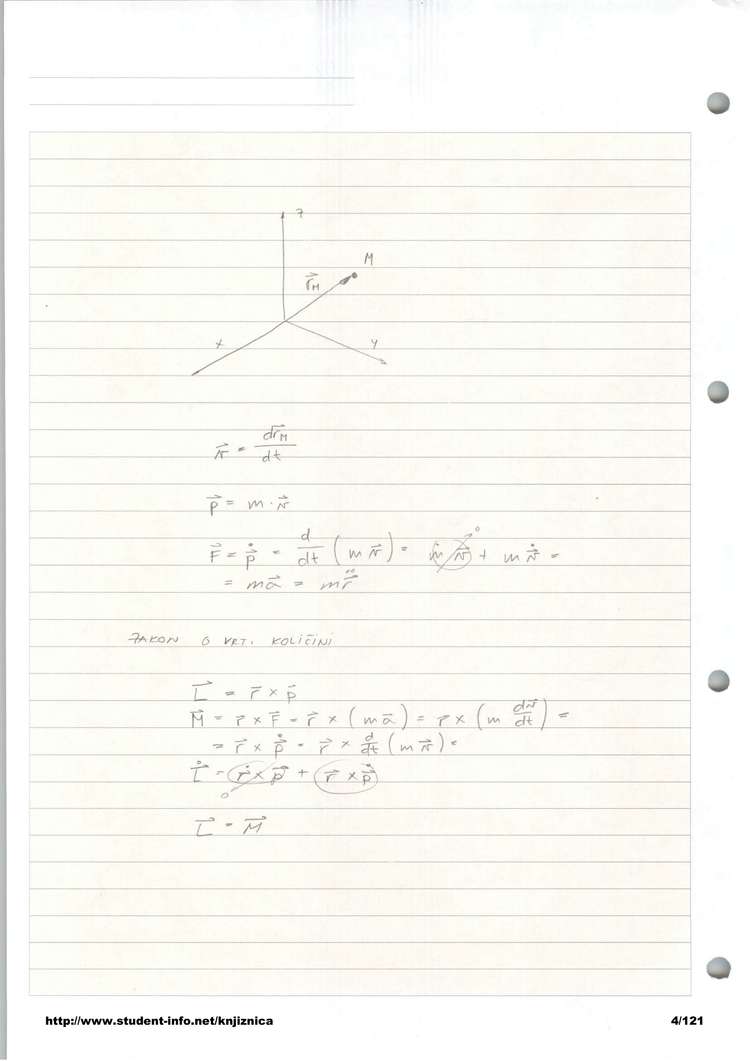 z
M
r⃗_M
x
y
v⃗ = dr⃗_M / dt
p⃗ = m · v⃗
F⃗ = p⃗̇ = d/dt ( m v⃗ ) = ṁ v⃗ ↗0 + m v⃗̇ =
= m a⃗ = m r⃗̈
ZAKON O VRT. KOLIČINI
L⃗ = r⃗ × p⃗
M⃗ = r⃗ × F⃗ = r⃗ × ( m a⃗ ) = r × ( m dv⃗/dt ) =
= r⃗ × p⃗̇ = r⃗ × d/dt ( m v⃗ ) =
L⃗̇ = r⃗̇ × p⃗ + r⃗ × p⃗̇
0
L⃗ = M⃗
http://www.student-info.net/knjiznica
4/121